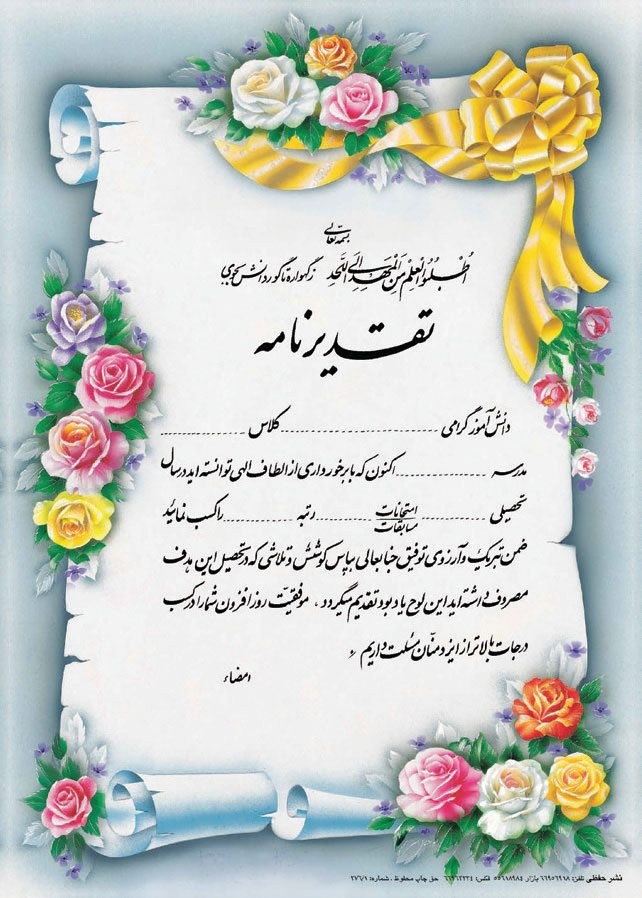 بسمه تعالی
اُطْلُبُوا الْعِلْمَ مِنَ الْمَهْدِ اِلَی اللَّحَدِ ز گهواره تا گور دانش بجوی
تقدیرنامه
دانش آموز گرامی .................... کلاس ....................
مدرسه .................... اکنون که با برخورداری از الطاف الهی توانسته اید در سال
تحصیلی .................... امتحانات
مسابقات .................... رتبه .................... را کسب نمائید
ضمن تبریک و آرزوی توفیق جنابعالی بپاس کوشش و تلاشی که در تحصیل این هدف
مصروف داشته اید این لوح یادبود تقدیم میگردد ، موفقیّت روز افزون شما را در کسب
درجات بالاتر از ایزد منّان مسئلت داریم
امضاء
نشر حفظی تلفن: ۶۶۹۵۶۹۱۸ بازار ۵۵۶۱۸۹۸۴ فکس: ۶۶۹۶۳۳۳۴ حق چاپ محفوظ . شماره: ۲۷۶/۱